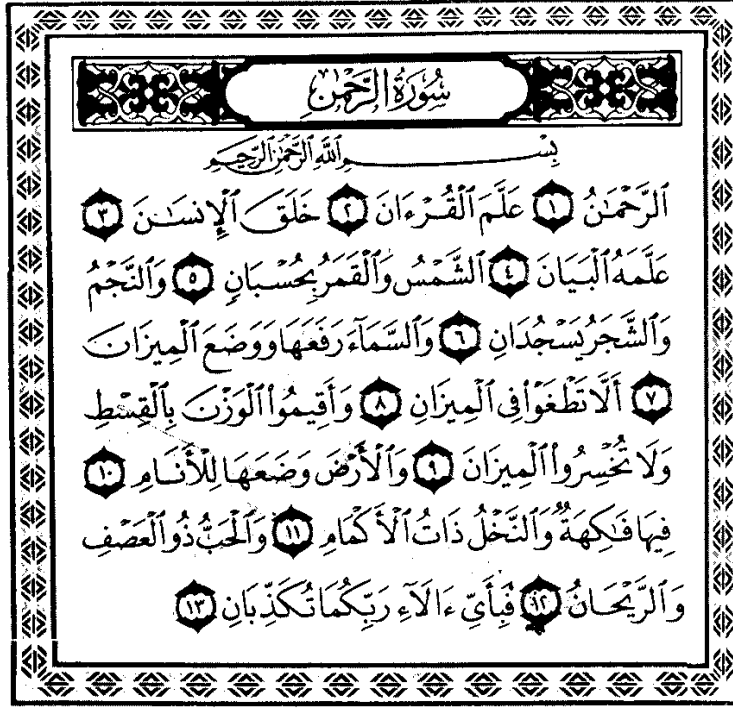 سُورَةُ الرَّحْمَٰنِ
بِسْمِ اللَّهِ الرَّحْمَٰنِ الرَّحِيمِ
الرَّحْمَٰنُ ١ عَلَّمَ الْقُرْءَانَ ٢ خَلَقَ الْإِنسَٰنَ ٣
عَلَّمَهُ الْبَيَانَ ٤ الشَّمْسُ وَالْقَمَرُ بِحُسْبَانٍ ٥ وَالنَّجْمُ
وَالشَّجَرُ يَسْجُدَانِ ٦ وَالسَّمَآءَ رَفَعَهَا وَوَضَعَ الْمِيزَانَ
٧ أَلَّا تَطْغَوْا فِى الْمِيزَانِ ٨ وَأَقِيمُوا الْوَزْنَ بِالْقِسْطِ
وَلَا تُخْسِرُوا الْمِيزَانَ ٩ وَالْأَرْضَ وَضَعَهَا لِلْأَنَامِ ١٠
فِيهَا فَٰكِهَةٌ وَالنَّخْلُ ذَاتُ الْأَكْمَامِ ١١ وَالْحَبُّ ذُو الْعَصْفِ
وَالرَّيْحَانُ ١٢ فَبِأَىِّ ءَالَآءِ رَبِّكُمَا تُكَذِّبَانِ ١٣